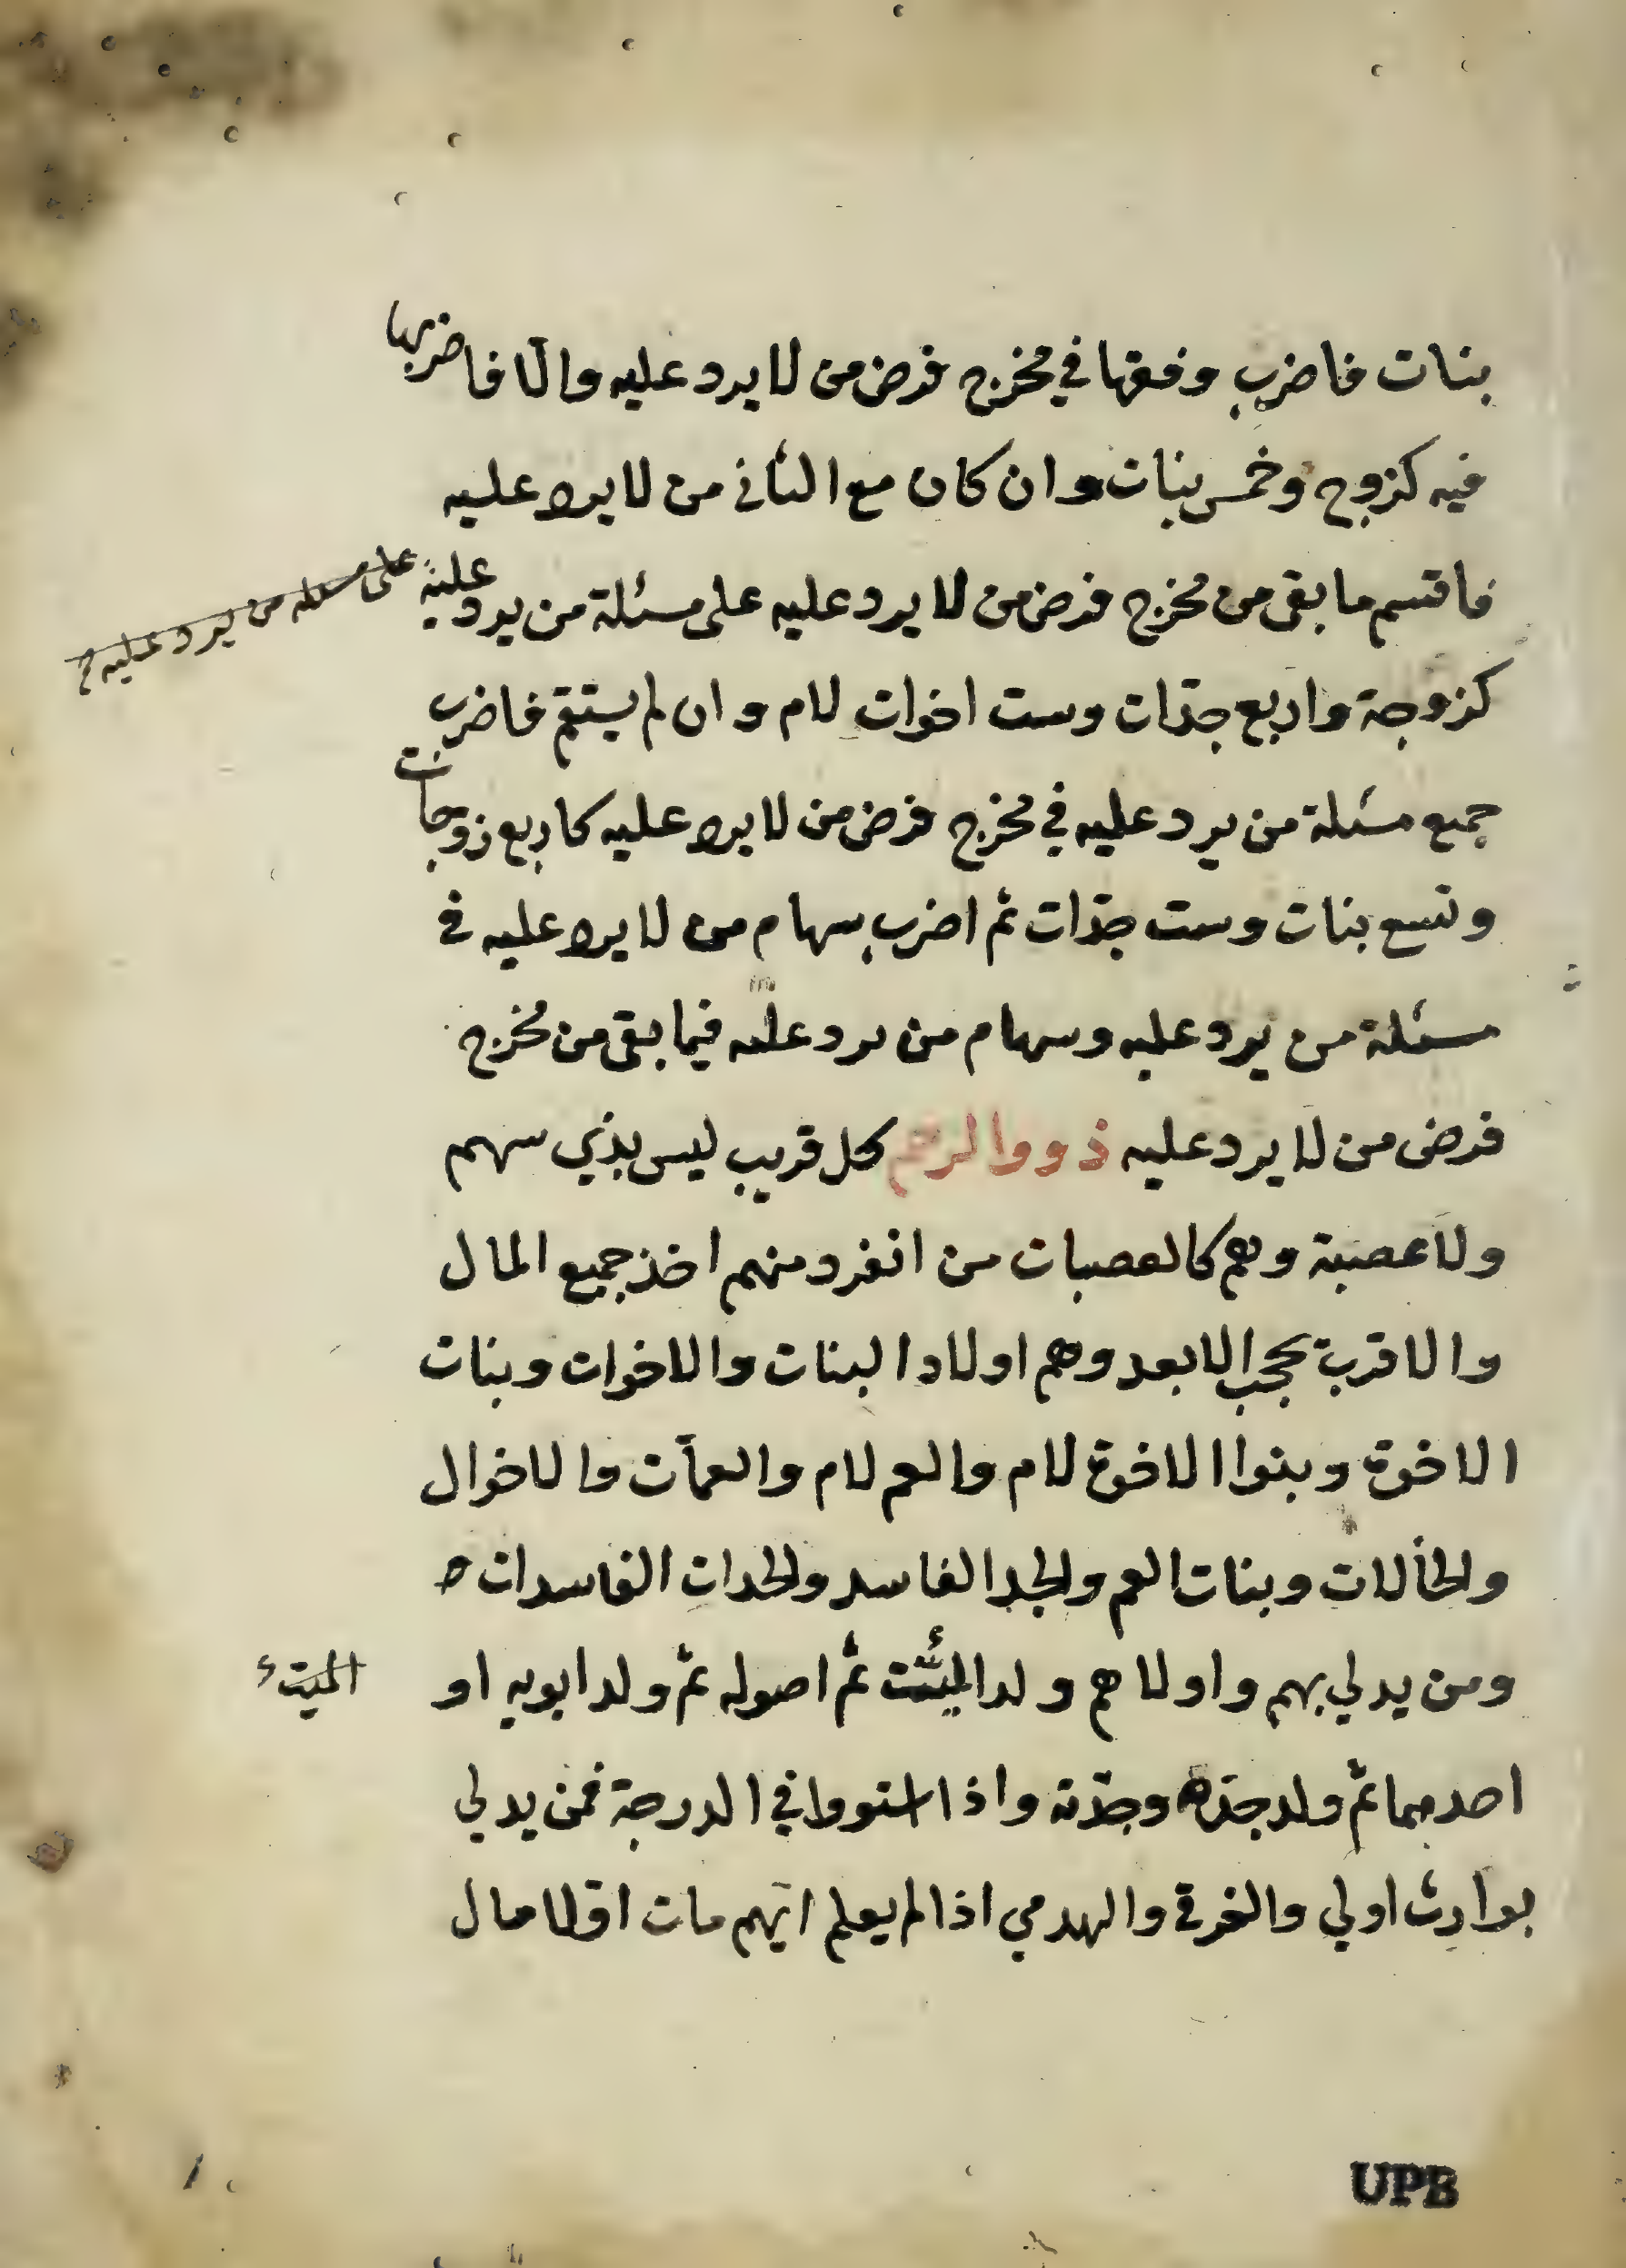 بنات فاضرب وفقها في مخرج فرض من لا يرد عليه والّا فاضربها
فيه كزوج وخمس بنات وان كان مع الثاني من لا يرد عليه
فاقسم ما بقى من مخرج فرض من لا يرد عليه على مسئلة من يرد عليه
على مسئله من يرد عليه
كزوجة واربع جدّات وست اخوات لام وان لم يستقم فاضرب
جميع مسئلة من يرد عليه في مخرج فرض من لا يرد عليه كاربع زوجات
وتسع بنات وست جدّات ثم اضرب سهام من لا يرد عليه في
مسئلة من يرد عليه وسهام من يرد عليه فيما بقى من مخرج
فرض من لا يرد عليه ذووا الرحم كل قريب ليس بذي سهم
ولا عصبة وهم كالعصبات من انفرد منهم اخذ جميع المال
والاقرب يحجب الابعد وهم اولاد البنات والاخوات وبنات
الاخوة وبنوا الاخوة لام والعم لام والعمّات والاخوال
والخالات وبنات العم والجد الفاسد والجدات الفاسدات
ومن يدلي بهم واولاهم ولد الميّت ثم اصوله ثم ولد ابويه او
الميّت
احدهما ثم ولد جدّه وجدّته واذا استووا في الدرجة فمن يدلي
بوارث اولي والغرقى والهدمي اذا لم يعلم ايّهم مات اوّلا مال
UPB